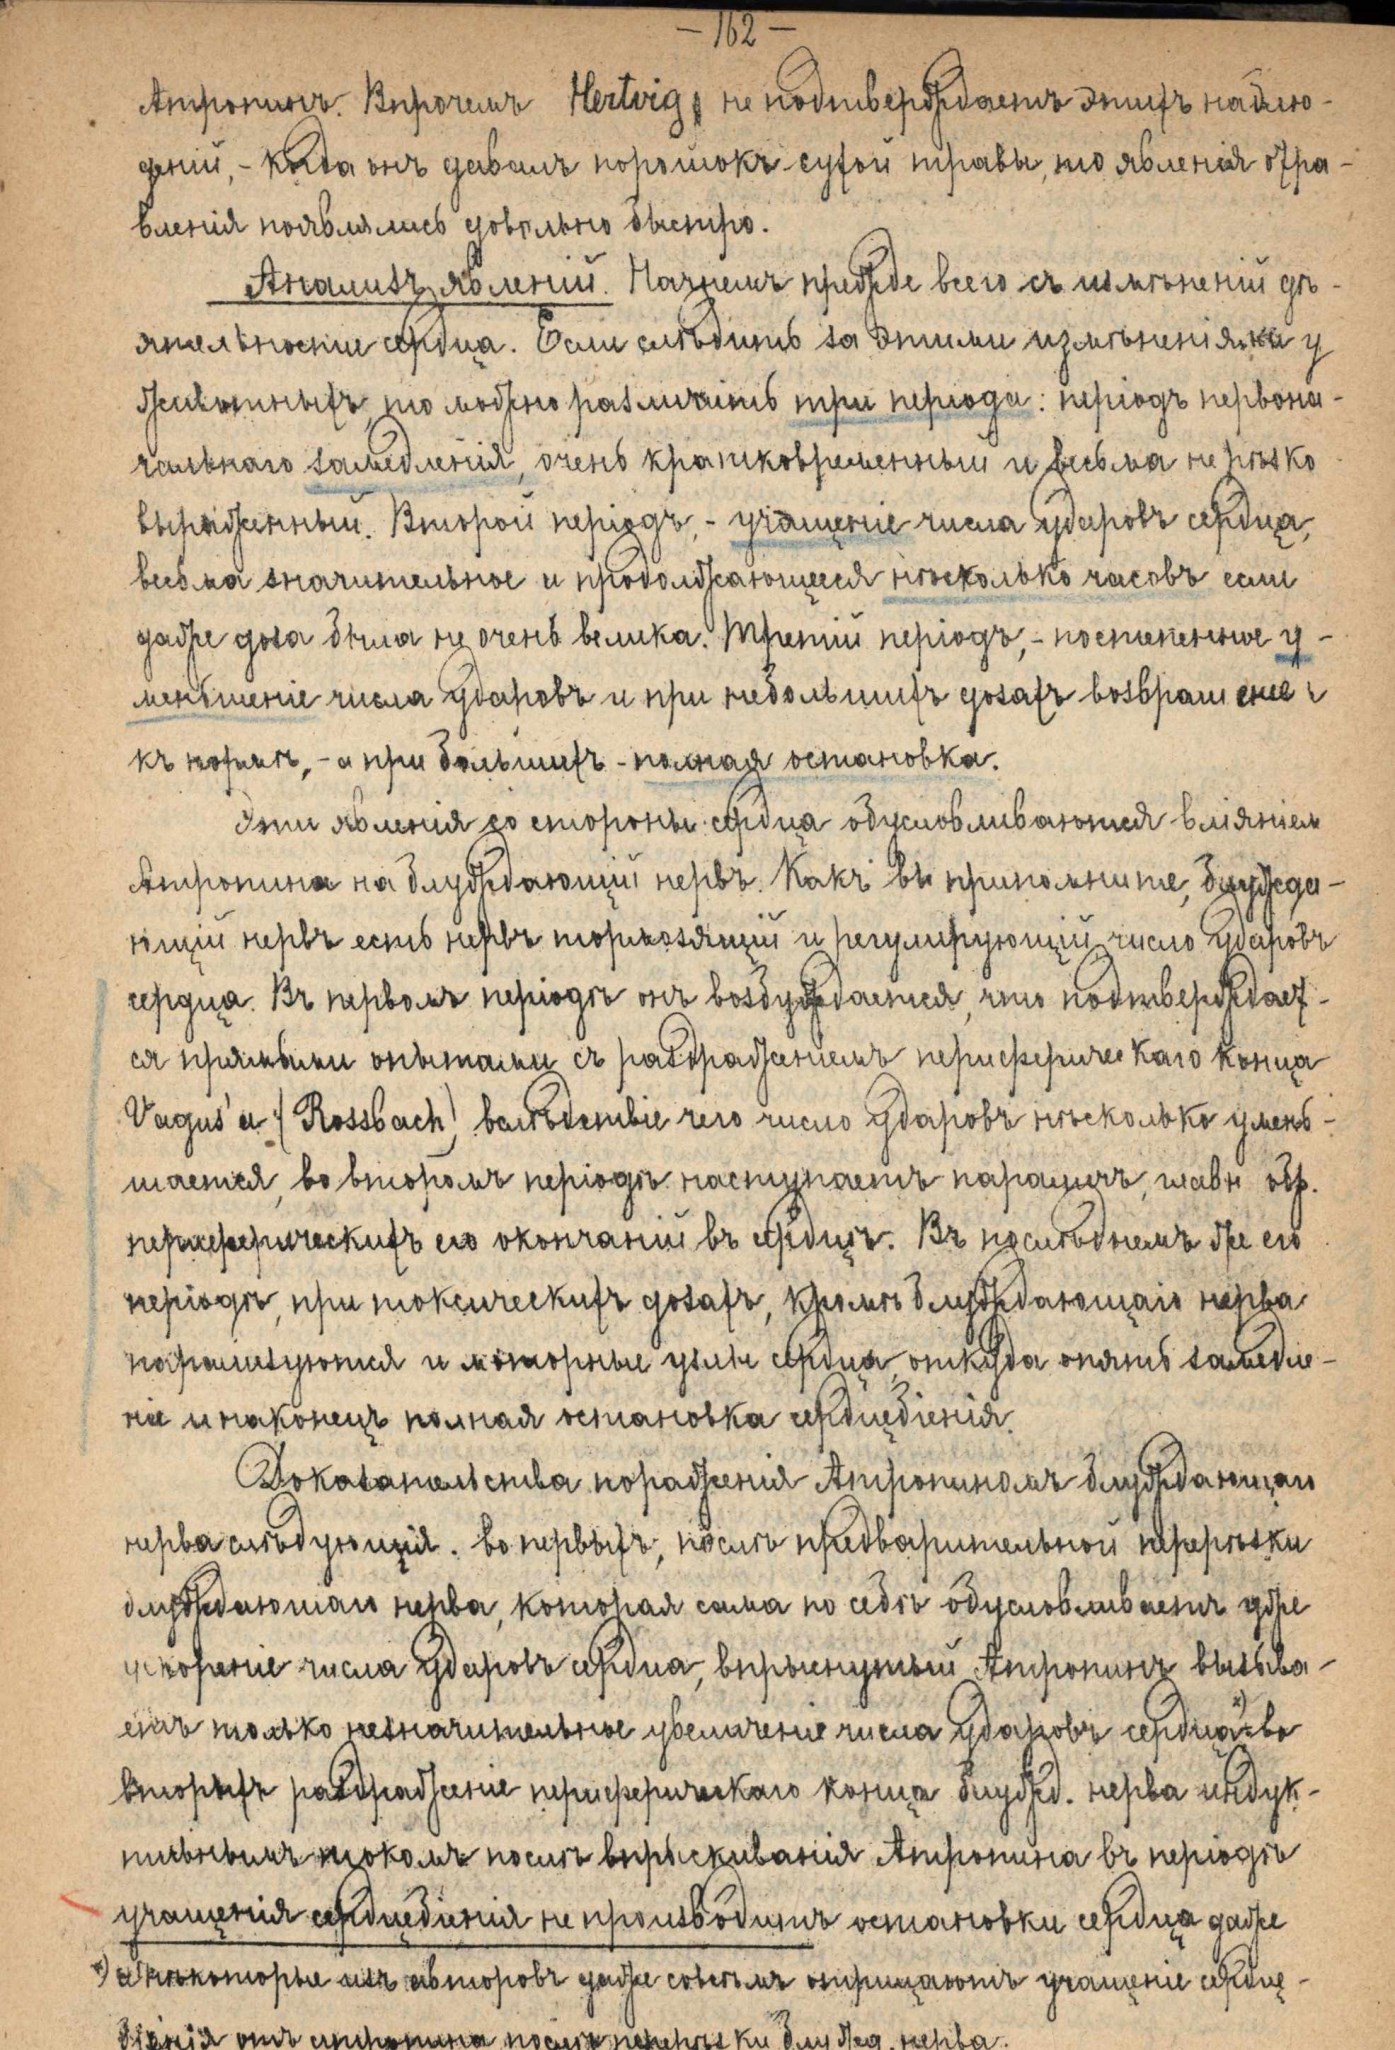 — 162 —
Атропинъ. Впрочемъ Hertvig не подтверждаетъ этихъ наблю-
деній, - когда онъ давалъ порошокъ сухой травы, то явленія отра-
вленія появлялись довольно быстро.
Анализъ явленій. Начнемъ прежде всего съ измѣненій дѣ-
ятельности сердца. Если слѣдить за этими измѣненіями у
животныхъ, то можно различить три періода: періодъ первона-
чальнаго замедленія, очень кратковременный и весьма не рѣзко
выраженный. Второй періодъ, - учащеніе числа ударовъ сердца,
весьма значительное и продолжающееся нѣсколько часовъ если
даже доза была не очень велика. Третій періодъ, - постепенное у-
меньшеніе числа ударовъ и при небольшихъ дозахъ возвращеніе
къ нормѣ, - а при большихъ - полная остановка.
Эти явленія со стороны сердца обусловливаются вліяніем
Атропина на блуждающій нервъ. Какъ вы припомните, блужда-
ющій нервъ есть нервъ тормозящій и регулирующій число ударовъ
сердца. Въ первомъ періодѣ онъ возбуждается, что подтверждает-
ся прямыми опытами съ раздраженіемъ периферическаго конца
Vagus'а (Rossbach) вслѣдствіе чего число ударовъ нѣсколько умень-
шается, во второмъ періодѣ наступаетъ параличъ, главн обр.
периферическихъ его окончаній въ сердцѣ. Въ послѣднемъ же его
періодѣ, при токсическихъ дозахъ, кромѣ блуждающаго нерва
парализуются и моторные узлы сердца, откуда опять замедле-
ніе и наконецъ полная остановка сердцебіенія.
Доказательства пораженія Атропиномъ блуждающаго
нерва слѣдующія. во первыхъ, послѣ предварительной перерѣзки
блуждающаго нерва, которая сама по себѣ обусловливаетъ уже
ускореніе числа ударовъ сердца, впрыснутый Атропинъ вызыва-
етъ только незначительное увеличеніе числа ударовъ сердца *) во
вторыхъ раздраженіе периферическаго конца блужд. нерва индук-
тивнымъ токомъ послѣ впрыскиванія Атропина въ періодѣ
учащенія сердцебіенія не производитъ остановки сердца даже
*) нѣкоторые изъ авторовъ даже совсѣмъ отрицаютъ учащеніе сердце-
біенія отъ атропина послѣ перерѣзки блужд. нерва.